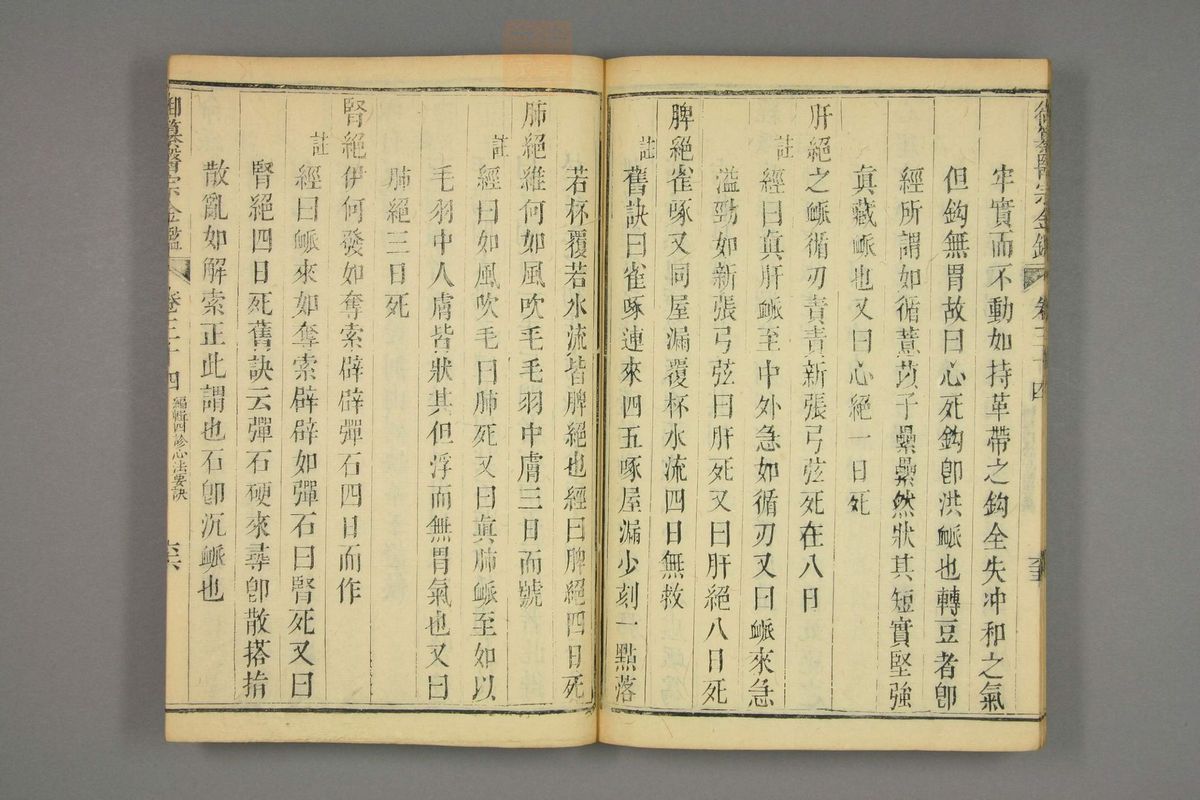 御纂醫宗金鑑
卷三十四
牢實而不動如持革帶之鈎全失冲和之氣
但鈎無胃故曰心死鈎卽洪䘑也轉豆者卽
經所謂如循薏苡子纍纍然狀其短實堅強
眞藏䘑也又曰心絕一日死
肝絕之䘑循刃責責新張弓弦死在八日
註 經曰眞肝䘑至中外急如循刃又曰䘑來急
溢勁如新張弓弦曰肝死又曰肝絕八日死
脾絕雀啄又同屋漏覆杯水流四日無救
註 舊訣曰雀啄連來四五啄屋漏少刻一點落
若杯覆若水流皆脾絕也經曰脾絕四日死
肺絕維何如風吹毛毛羽中膚三日而號
註 經曰如風吹毛曰肺死又曰眞肺䘑至如以
毛羽中人膚皆狀其但浮而無胃氣也又曰
肺絕三日死
腎絕伊何發如奪索辟辟彈石四日而作
註 經曰䘑來如奪索辟辟如彈石曰腎死又曰
腎絕四日死舊訣云彈石硬來尋卽散搭指
散亂如解索正此謂也石卽沉䘑也
御纂醫宗金鑑
卷三十四
編輯四診心法要訣